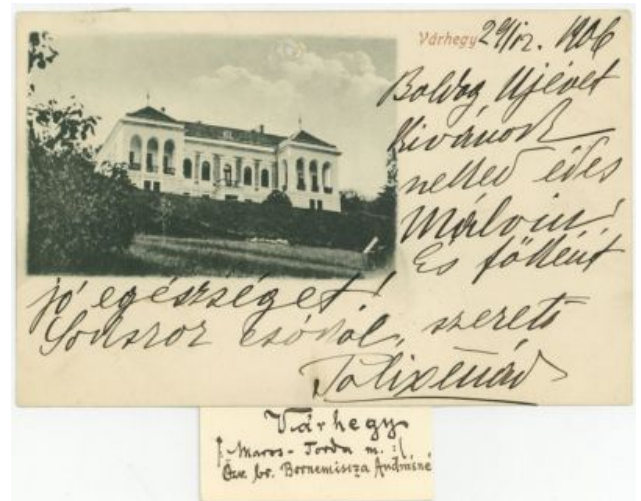 Várhegy 29/12. 1906
Boldog Ujévet
Kivánok
neked édes
Málvin!
És főként
jó egészséget!
Sokszor csókol, szerető
Polixénád
Várhegy
Maros-Torda m.
Özv. br. Bornemisza